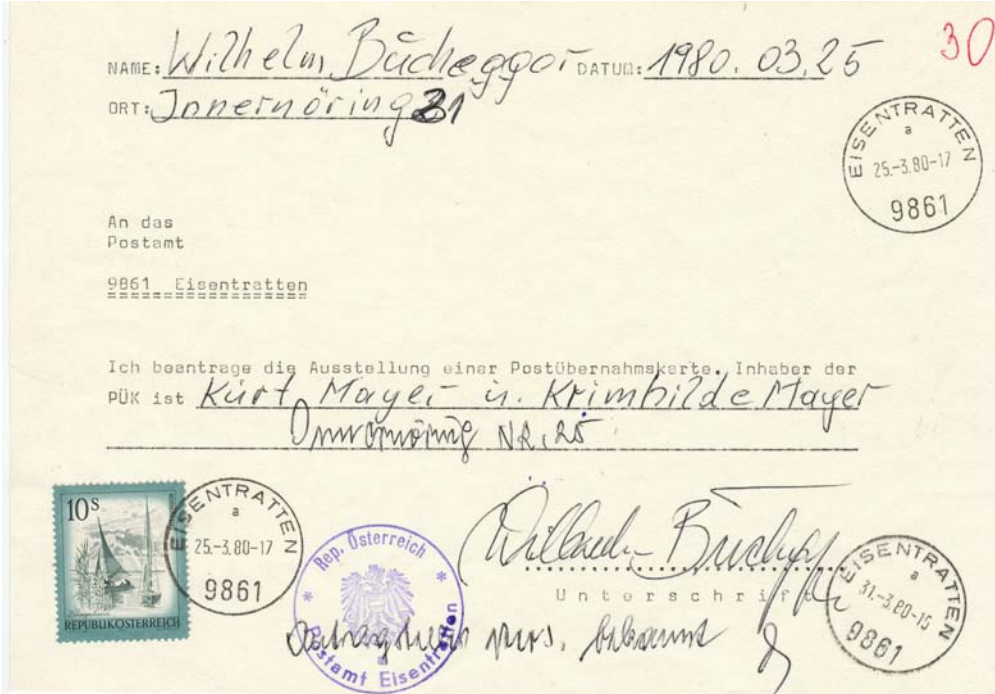 30
NAME: Wilhelm Bucheggor DATUM: 1980. 03. 25
ORT: Innernöring 21
EISENTRATTEN
a
25.-3.80-17
9861
An das
Postamt
9861 Eisentratten
Ich beantrage die Ausstellung einer Postübernahmskarte. Inhaber der
PÜK ist Kurt Mayer u. Krimhilde Mayer
Innernöring NR. 25
10S
REPUBLIK ÖSTERREICH
EISENTRATTEN
a
25.-3.80-17
9861
Rep. Österreich
Postamt Eisentratten
Unterschrift
Antragsteller pers. bekannt
EISENTRATTEN
a
31.-3.80-15
9861